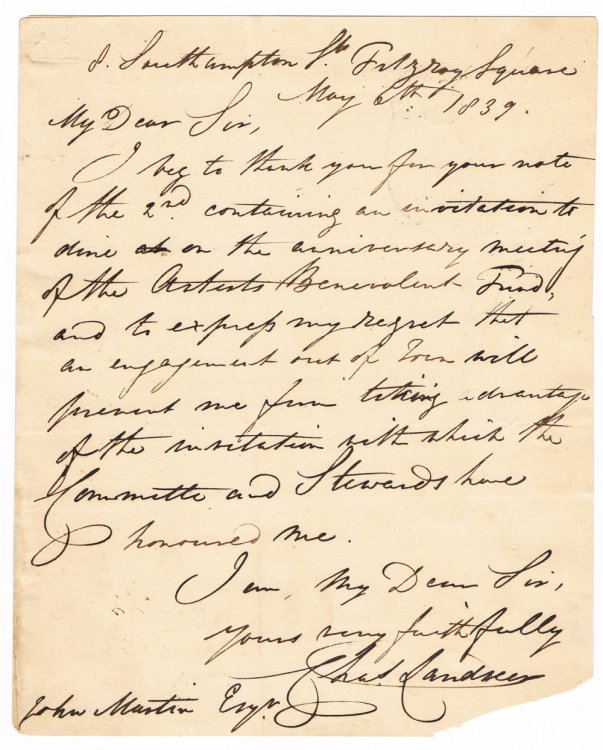 8. Southampton St. Fitzroy Square
May 6th 1839.
My Dear Sir,
I beg to thank you for your note
of the 2nd. containing an invitation to
dine at on the anniversary meeting
of the Artists Benevolent Fund,
and to express my regret that
an engagement out of Town will
prevent me from taking advantage
of the invitation with which the
Committee and Stewards have
honoured me.
I am, My Dear Sir,
yours very faithfully
Chas. Landseer
John Martin Esqr.